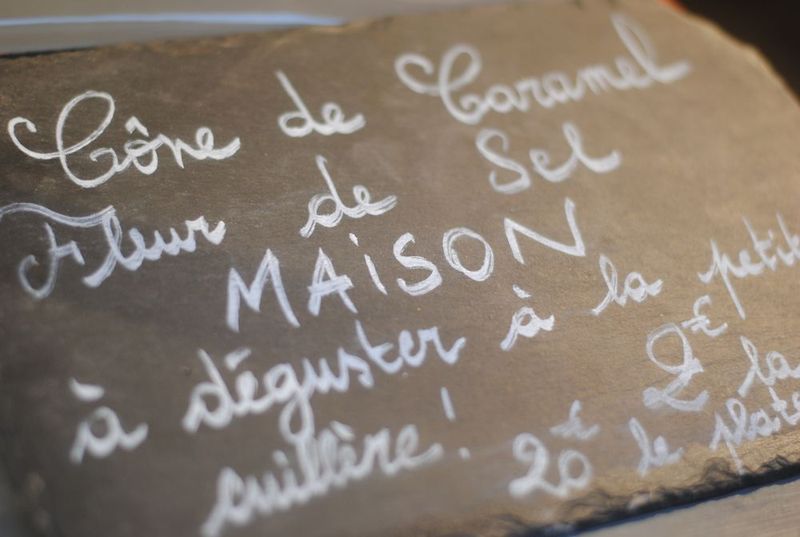 Cône de Caramel
Fleur de Sel
MAiSON
à déguster à la petite
cuillère! 2€ la
20€ le plate